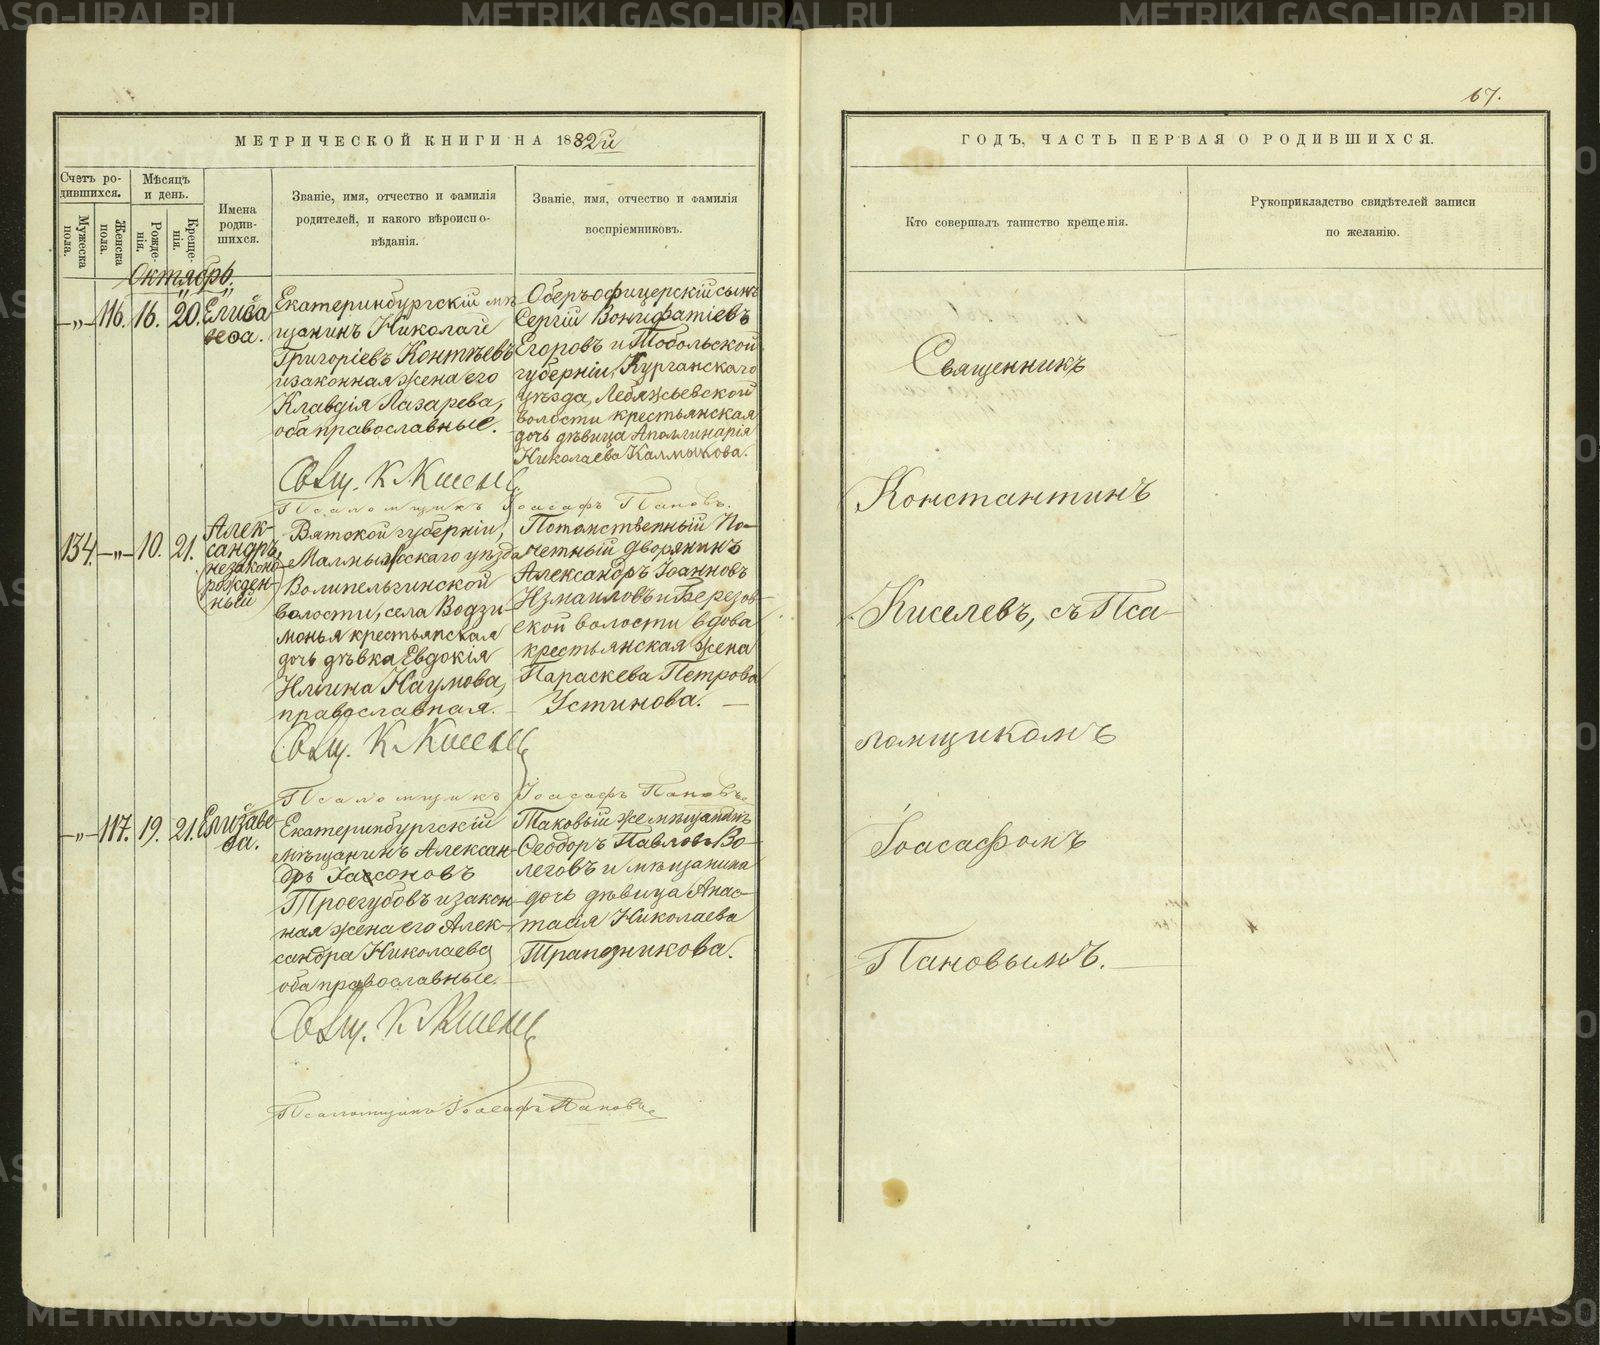 67.
МЕТРИЧЕСКОЙ КНИГИ НА 1882й
Счетъ ро-
дившихся.
Мужеска пола.
Женска пола.
Мѣсяцъ
и день.
Рожде-
нія.
Креще-
нія.
Имена
родив-
шихся.
Званіе, имя, отчество и фамилія
родителей, и какого вѣроиспо-
вѣданія.
Званіе, имя, отчество и фамилія
воспріемниковъ.
Октябрь.
-„- 116. 16. 20.
Елиса
веѳа.
Екатеринбургскій мѣ
щанинъ Николай
Григоріевъ Контѣевъ
и законная жена его
Клавдія Лазарева,
оба православные.
Оберъ офицерскій сынъ
Сергій Вонифатіевъ
Егоровъ и Тобольской
губерніи, Курганскаго
уѣзда, Лебяжьевской
волости крестьянская
дочь дѣвица Аполлинарія
Николаева Калмыкова.
Свящ. К Кисел
Псаломщикъ Іоасафъ Пановъ.
134. -„- 10. 21.
Алек-
сандръ,
незаконо
рожден-
ный
Вятской губерніи,
Малмыжскаго уѣзда
Волипельгинской
волости, села Водзи-
монья крестьянская
дочь дѣвка Евдокія
Ильина Наумова,
православная.
Потомственный По-
четный дворянинъ
Александръ Іоанновъ
Измаиловъ и Березов-
ской волости вдова
крестьянская жена
Параскева Петрова
Устинова.
Свящ. К. Кисел
Псаломщикъ Іоасафъ Пановъ
-„- 117. 19. 21.
Елизаве
ѳа.
Екатеринбургскій
мѣщанинъ Алексан-
дръ Іассоновъ
Троегубовъ и закон-
ная жена его Алек-
сандра Николаева
оба православные.
Таковый же мѣщанинъ
Ѳеодоръ Павловъ Во-
леговъ и мѣщанина
дочь дѣвица Анас-
тасія Николаева
Трапезникова.
Свящ. К Кисел
Псаломщикъ Іоасафъ Пановъ
ГОДЪ, ЧАСТЬ ПЕРВАЯ О РОДИВШИХСЯ.
Кто совершалъ таинство крещенія.
Рукоприкладство свидѣтелей записи
по желанію.
Священникъ
Константинъ
Киселевъ, съ Пса-
ломщикомъ
Іоасафомъ
Пановымъ.
METRIKI.GASO-URAL.RU